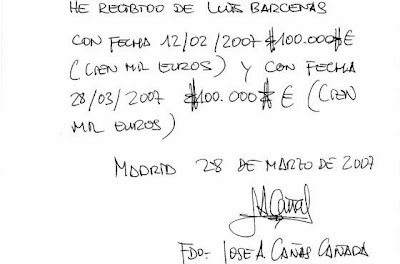 HE RECIBIDO DE LUIS BARCENAS
CON FECHA 12/02/2007 #100.000#€
(CIEN MIL EUROS) Y CON FECHA
28/03/2007 #100.000#€ (CIEN
MIL EUROS)
MADRID 28 DE MARZO DE 2007
FDO.- JOSE A. CAÑAS CAÑADA